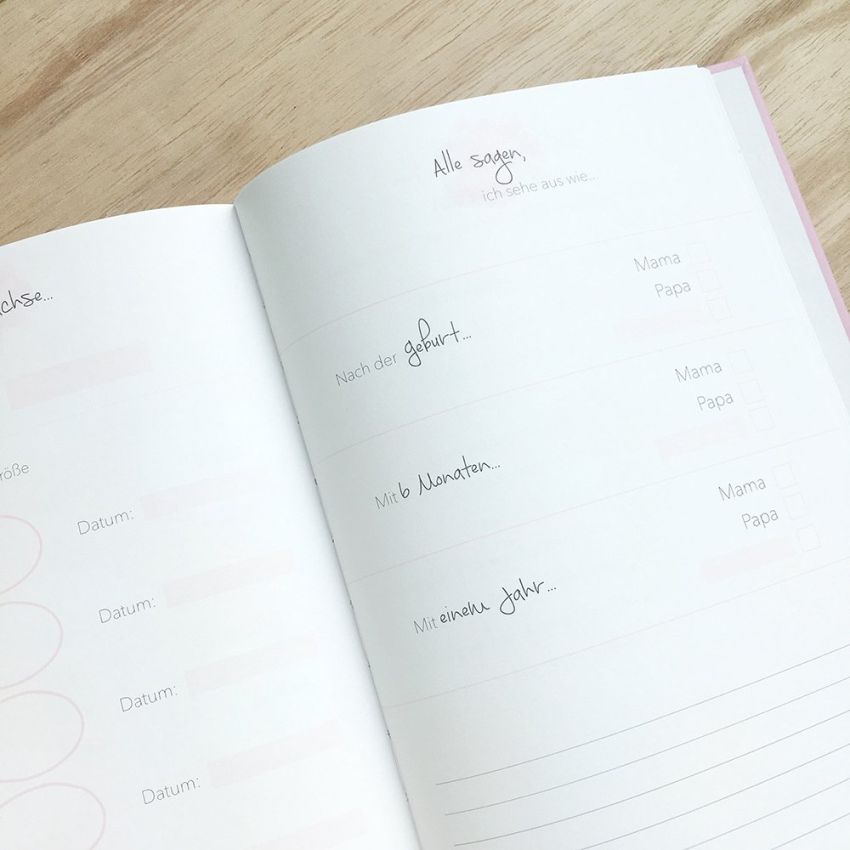 Alle sagen,
ich sehe aus wie...
Nach der geburt...
Mama
Papa
Mit 6 Monaten...
Mama
Papa
Mit einem Jahr...
Mama
Papa
Datum:
Datum:
Datum:
Datum: